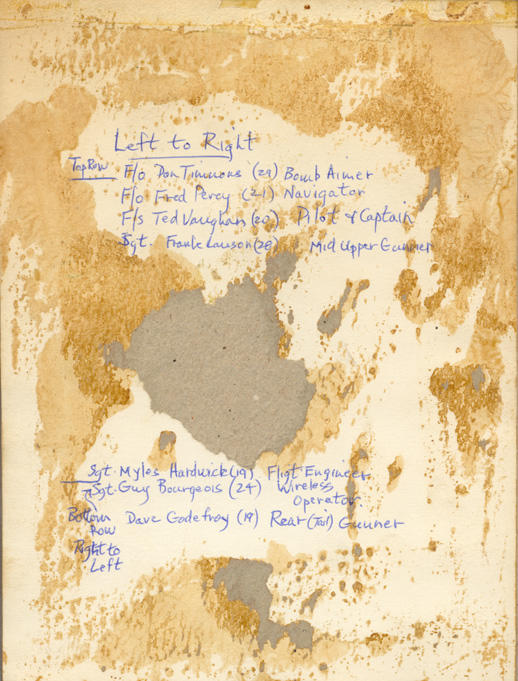 Left to Right
Top Row F/o Don Timmons (29) Bomb Aimer
F/o Fred Percy (21) Navigator
F/s Ted Vaughan (20) Pilot & Captain
Sgt. Frank Lawson (28) Mid Upper Gunner
Sgt. Myles Hardwick (19) Fligt Engineer
Sgt. Guy Bourgeois (24) Wireless
Operator
Bottom Row Dave Godefroy (19) Rear (Tail) Gunner
Right to
Left